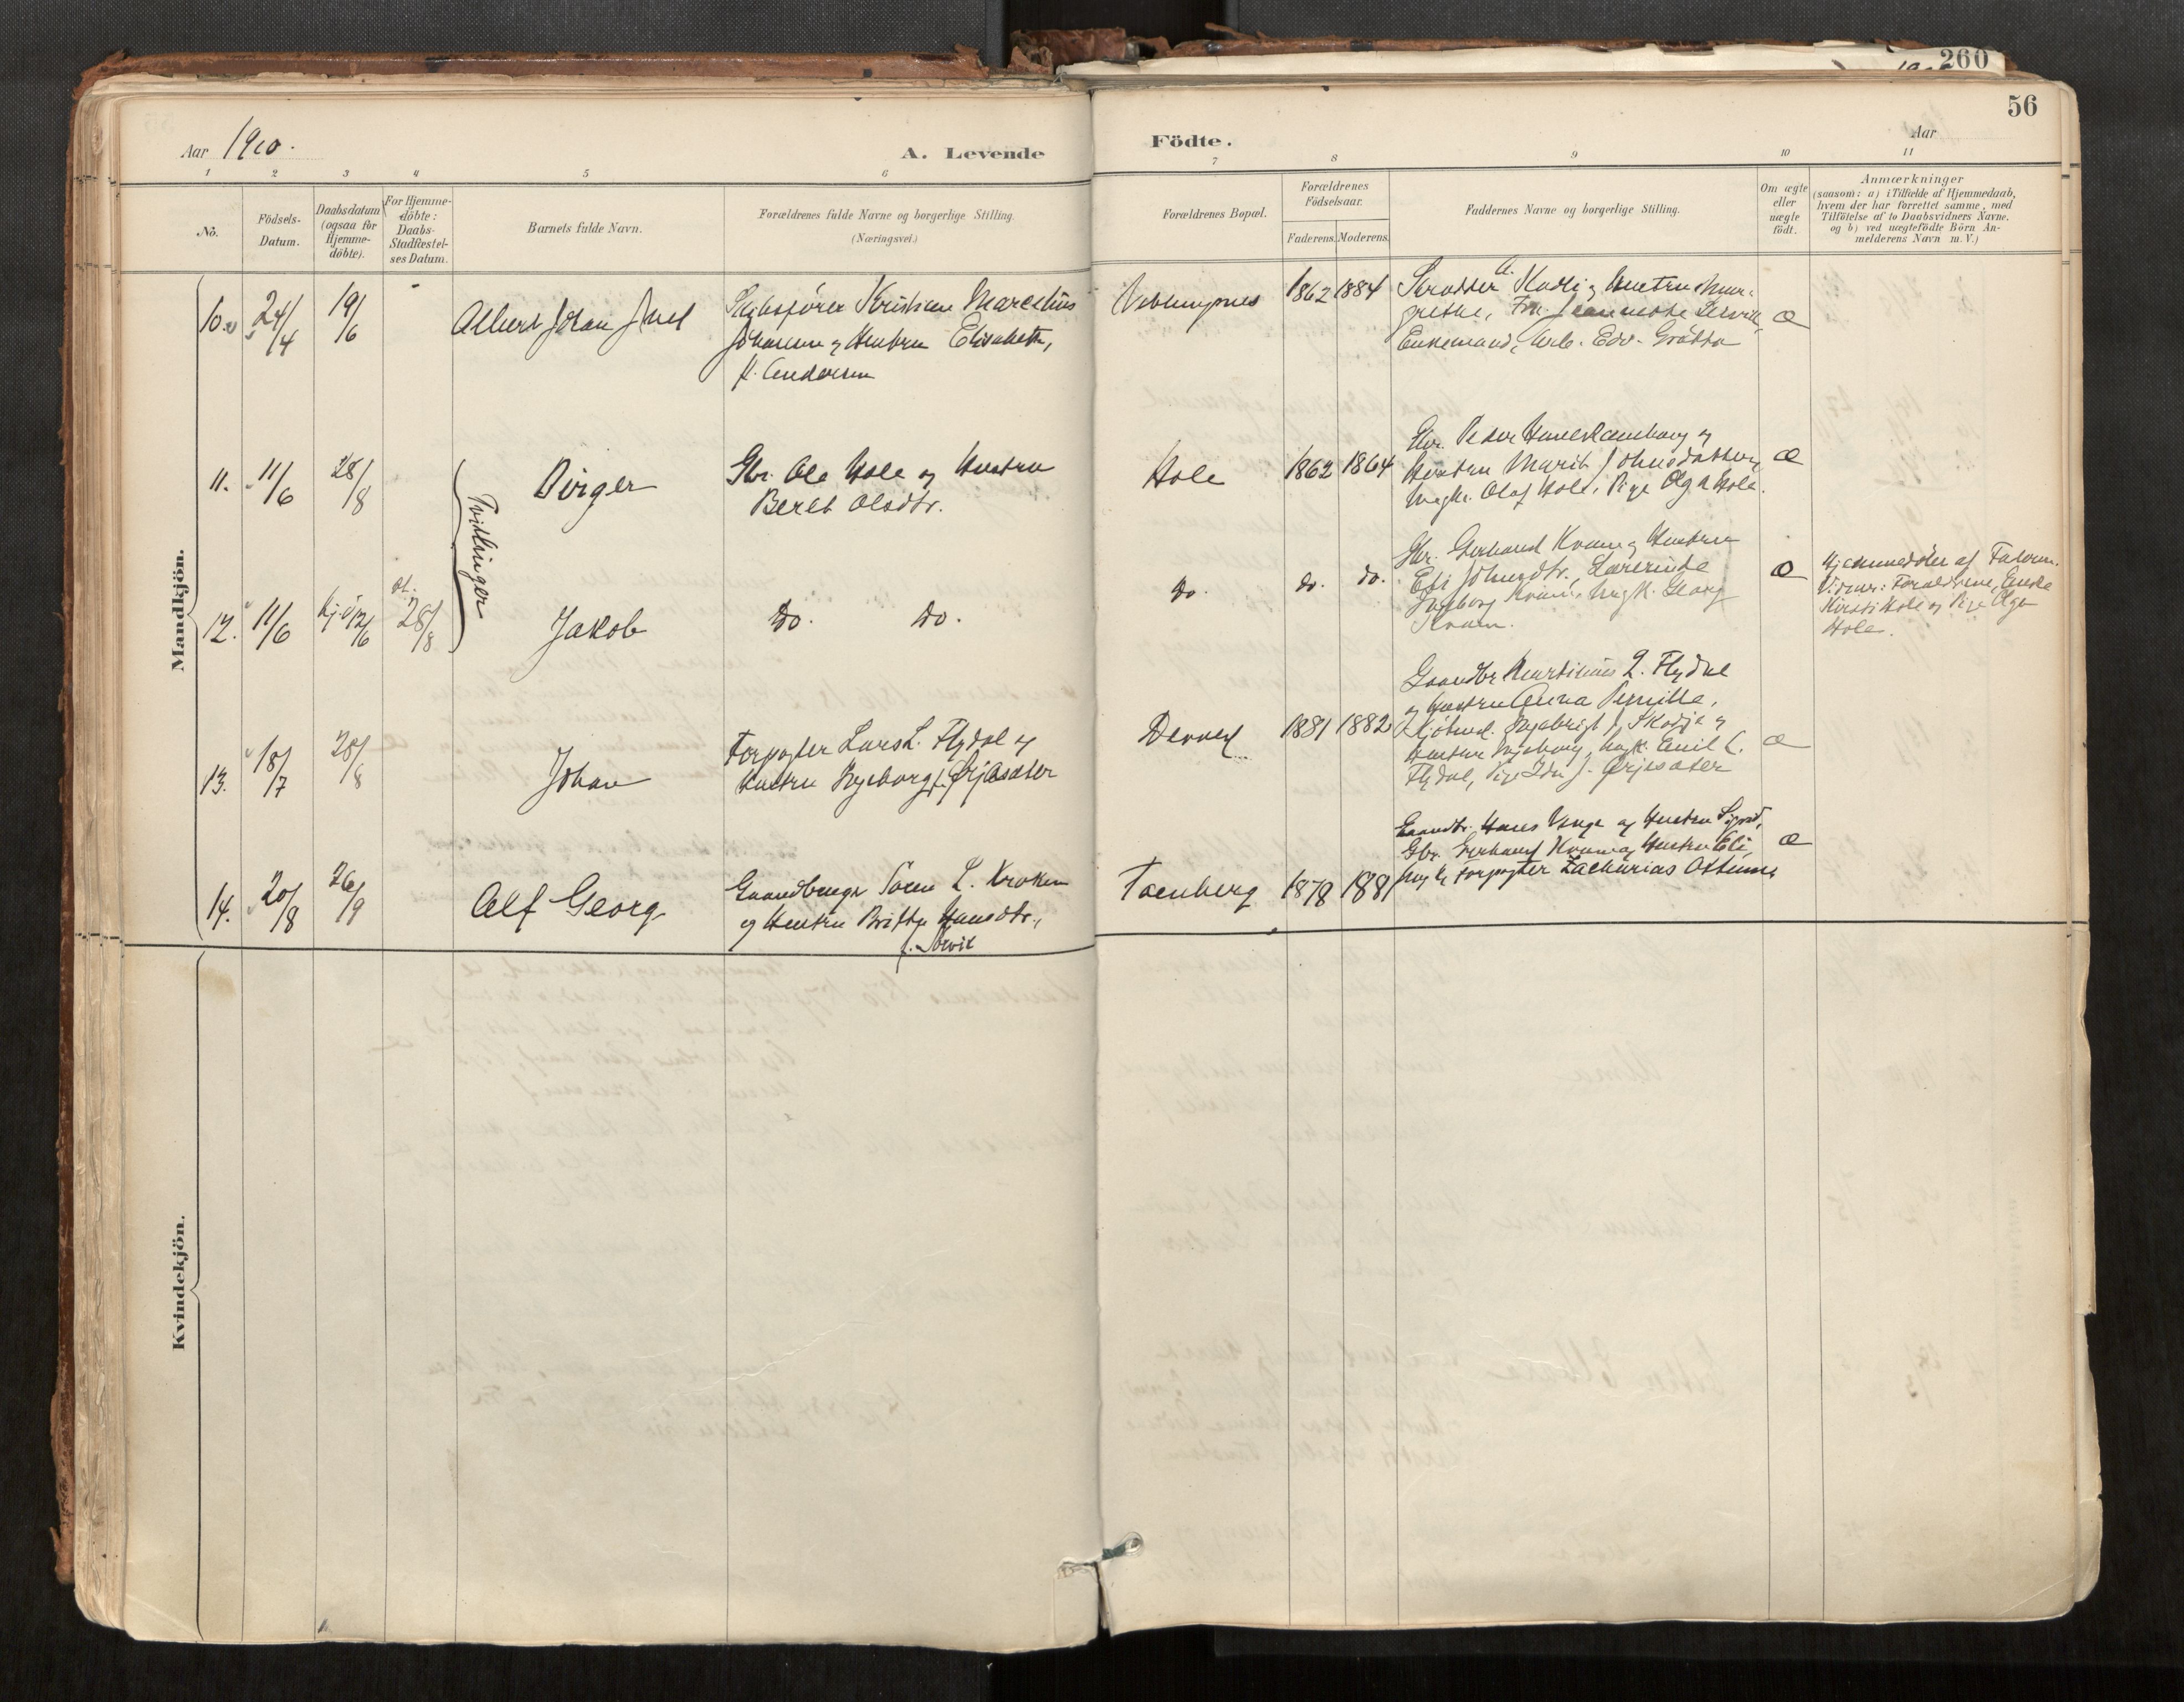 260
56
Aar 1900.
A. Levende
Födte.
Aar
1 2 3 4 5 6 7 8 9 10 11
No.
Födsels-
Datum.
Daabsdatum
(ogsaa for
Hjemme-
döbte).
For Hjemme-
döbte:
Daabs-
Stadfæstel-
ses Datum.
Barnets fulde Navn.
Forældrenes fulde Navne og borgerlige Stilling.
(Næringsvei.)
Forældrenes Bopæl.
Forældrenes
Födselsaar.
Faderens. Moderens.
Faddernes Navne og borgerlige Stilling.
Om ægte
eller
uægte
födt.
Anmærkninger
(saasom: a) i Tilfælde af Hjemmedaab,
hvem der har forrettet samme, med
Tilföielse af to Daabsvidners Navne.
og b) ved uægtefödte Börn An-
melderens Navn m. V.)
Mandkjön.
10. 24/4 19/6
Albert Johan
Kristian Marcelius
Johansen og Hustru Elisabeth,
f. Andersen
1862 1884
Hustru Mar-
grethe,
Enkemand, Edv. Grötta
æ
11. 11/6 28/8
Birger
Tvillinger
Gbr. Ole Hole og Hustru
Berit Olsdtr.
Hole
1862 1864
Gbr. Peder
Hustru Marit Johnsdatter,
Ungk. Olaf Hole, Pige Olga Hole.
æ
12. 11/6 hjd 12/6 st. 28/8
Jakob
Do. Do.
Do.
do. do.
Gbr. Gerhard Kvam og Hustru
Eli Johnsdtr., Lærerinde
Ingeborg Kvam, Ungk. Georg
Kvam.
æ
Hjemmedöbt af Faderen.
Vidner: Forældrene,
Kirsti Hole og Pige Olga
Hole.
13. 18/7 28/8
Johan
Forpagter Lars L. Flydal og
Hustru Ingeborg f. Örjasæter
1881 1882
Gaardbr. Martinus L. Flydal
og Hustru Anna Pernille,
Ingebrigt J. Skodje og
Hustru Ingeborg, Ungk. Emil L.
Flydal, Pige Ida J. Örjesæter
æ
14. 20/8 26/9
Alf Georg
Gaardbruger Sören L. Kroken
og Hustru Hansdtr.,
1878 1881
Gaardbr. Hans Venge og Hustru
Gbr. Gerhard Kvam og Hustru Eli,
Ungk. Forpagter Zacharias
æ
Kvindekjön.